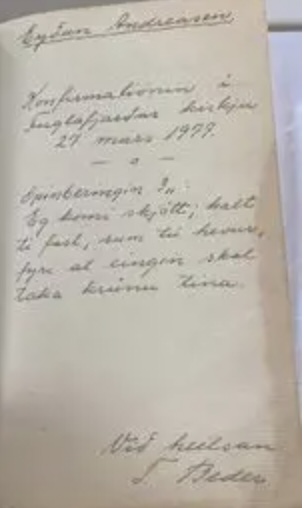 Eyðun Andreasen,
Konfirmatiónin í
Fuglafjarðar kirkju
27 mars 1977.
— o —
Opinberingin 3,11:
Eg komi skjótt; halt
tí fast, sum tú hevur,
fyri at eingin skal
taka krúnu tína.
Við heilsan
Beder